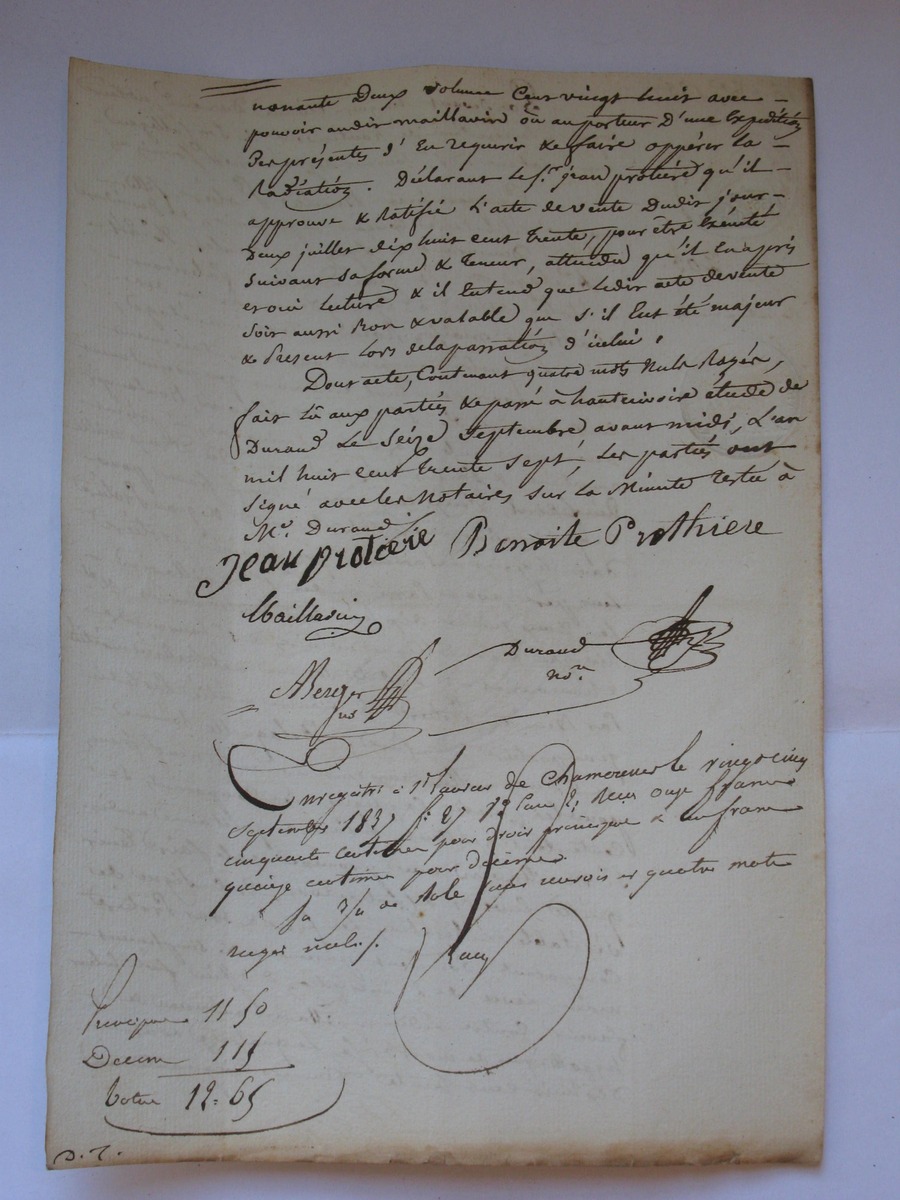 nonante Deux volume Cent vingt huit avec –
pouvoir audit maillavin ou au porteur D'une Expédition
Des présentes d'En requerir & faire oppérer la –
Radiation. Déclarant le S.r jean protiere qu'il –
approuve & Ratifie L'acte de vente Dudit jour –
Deux juillet dix huit cent trente, pour être Exécuté
suivant sa forme & teneur, attendu qu'il En a pris
et oui lecture & il Entend que ledit acte de vente
soit aussi Bon & valable que s'il Eut été majeur
& Present lors de la passation d'icelui.
Dont acte, Contenant quatre mots Nuls Rayés,
fait lû aux parties & passé à hauterivoire étude de
Durand Le Seize Septembre avant midi, L'an
mil huit cent trente sept, Les parties ont
signé avec les Notaires sur la Minute restée à
M.e Durand
Jean protiere Benoite Prothiere
Maillavin
Durand
no.re
Berger
no
Enregistré à St Laurent de Chamousset le vingt cinq
Septembre 1837 f.o 27 Reçu onze francs
cinquante centimes pour droit principal & un franc
quinze centimes pour décime
quatre mots
rayés nuls.
Principal 11 50
Decime 1 15
Total 12=65
D. T.